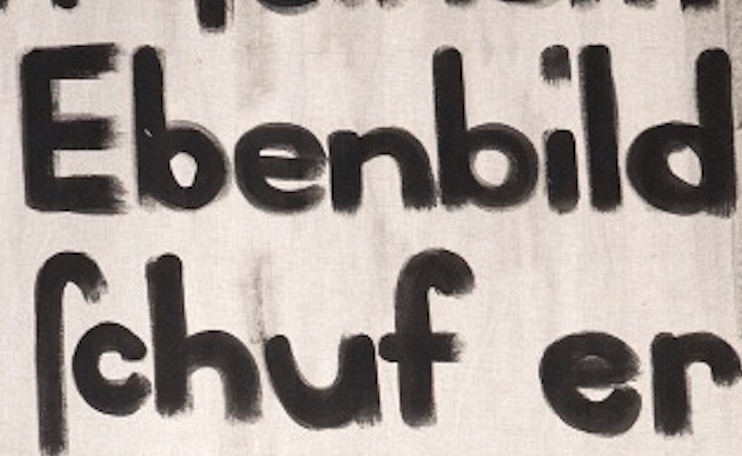 Ebenbild
ſchuf er